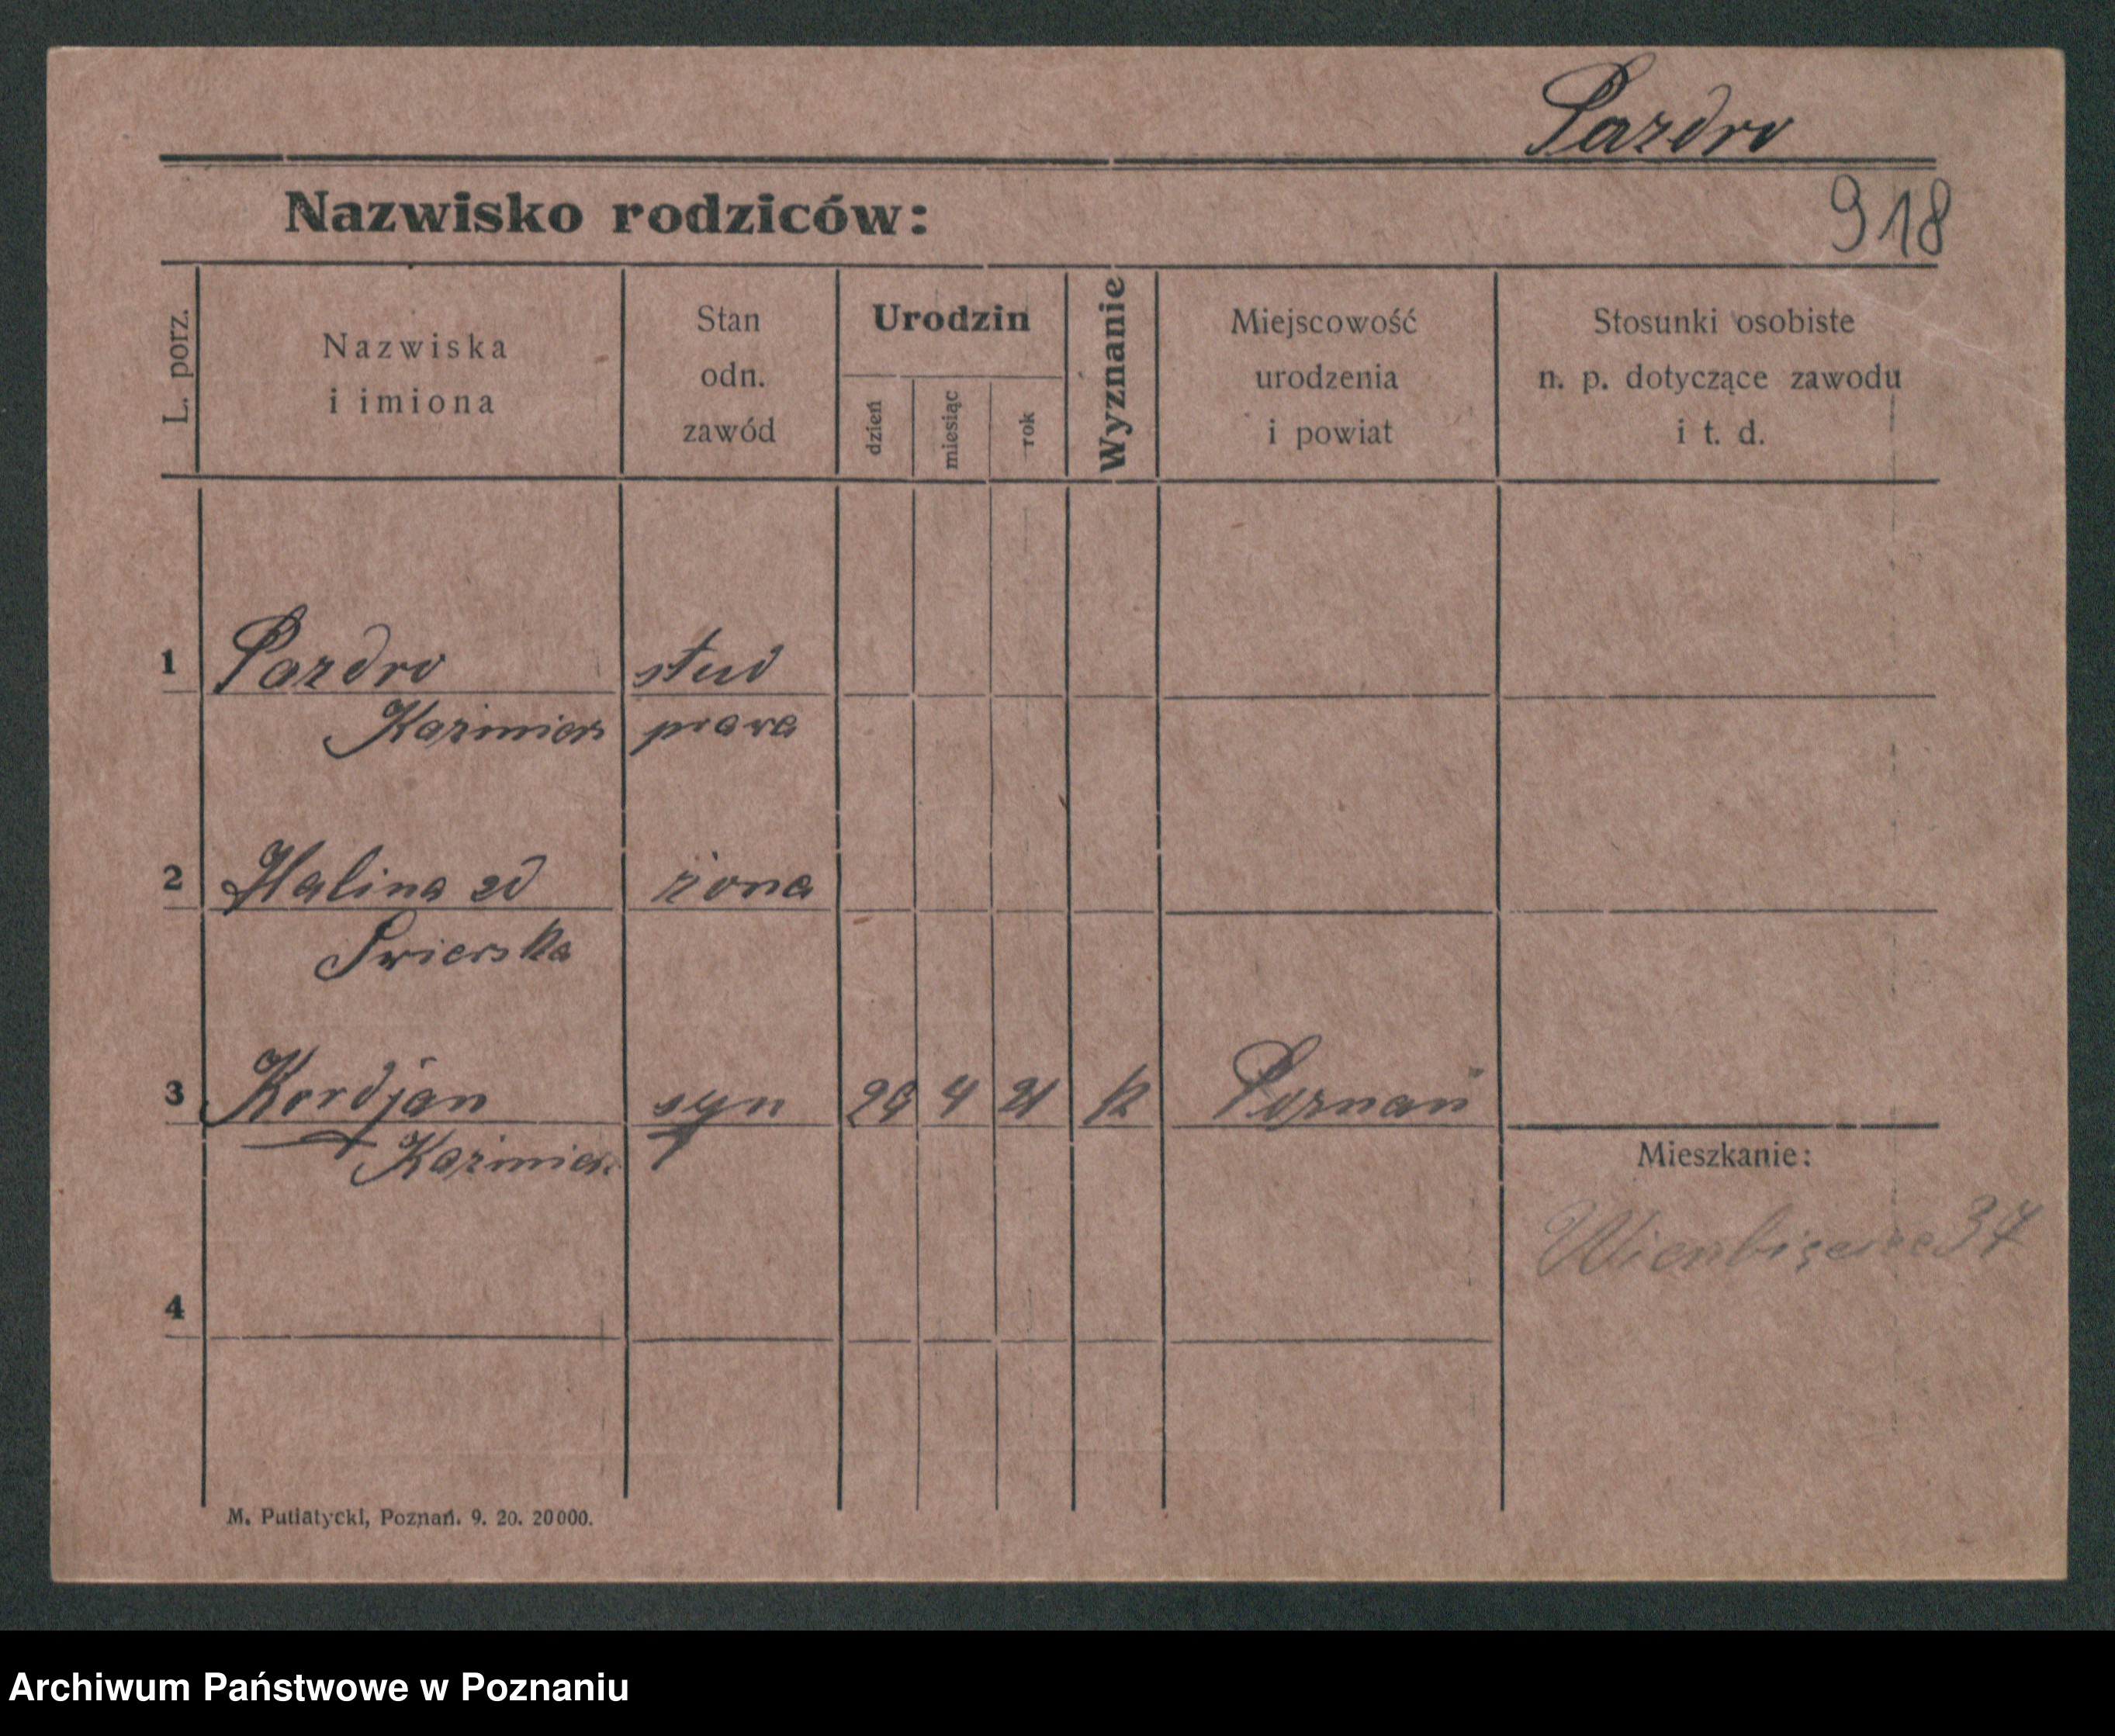 Pazdro
Nazwisko rodziców:
918
L. porz.
Nazwiska
i imiona
Stan
odn.
zawód
Urodzin
dzień
miesiąc
rok
Wyznanie
Miejscowość
urodzenia
i powiat
Stosunki osobiste
n. p. dotyczące zawodu
i t. d.
1 Pazdro stud
Kazimierz prawa
2 Halina zd żona
Swierska
3 Kordjan syn 29 4 21 k Poznań
Kazimierz
Mieszkanie:
37
4
M. Putiatycki, Poznań. 9. 20. 20000.
Archiwum Państwowe w Poznaniu